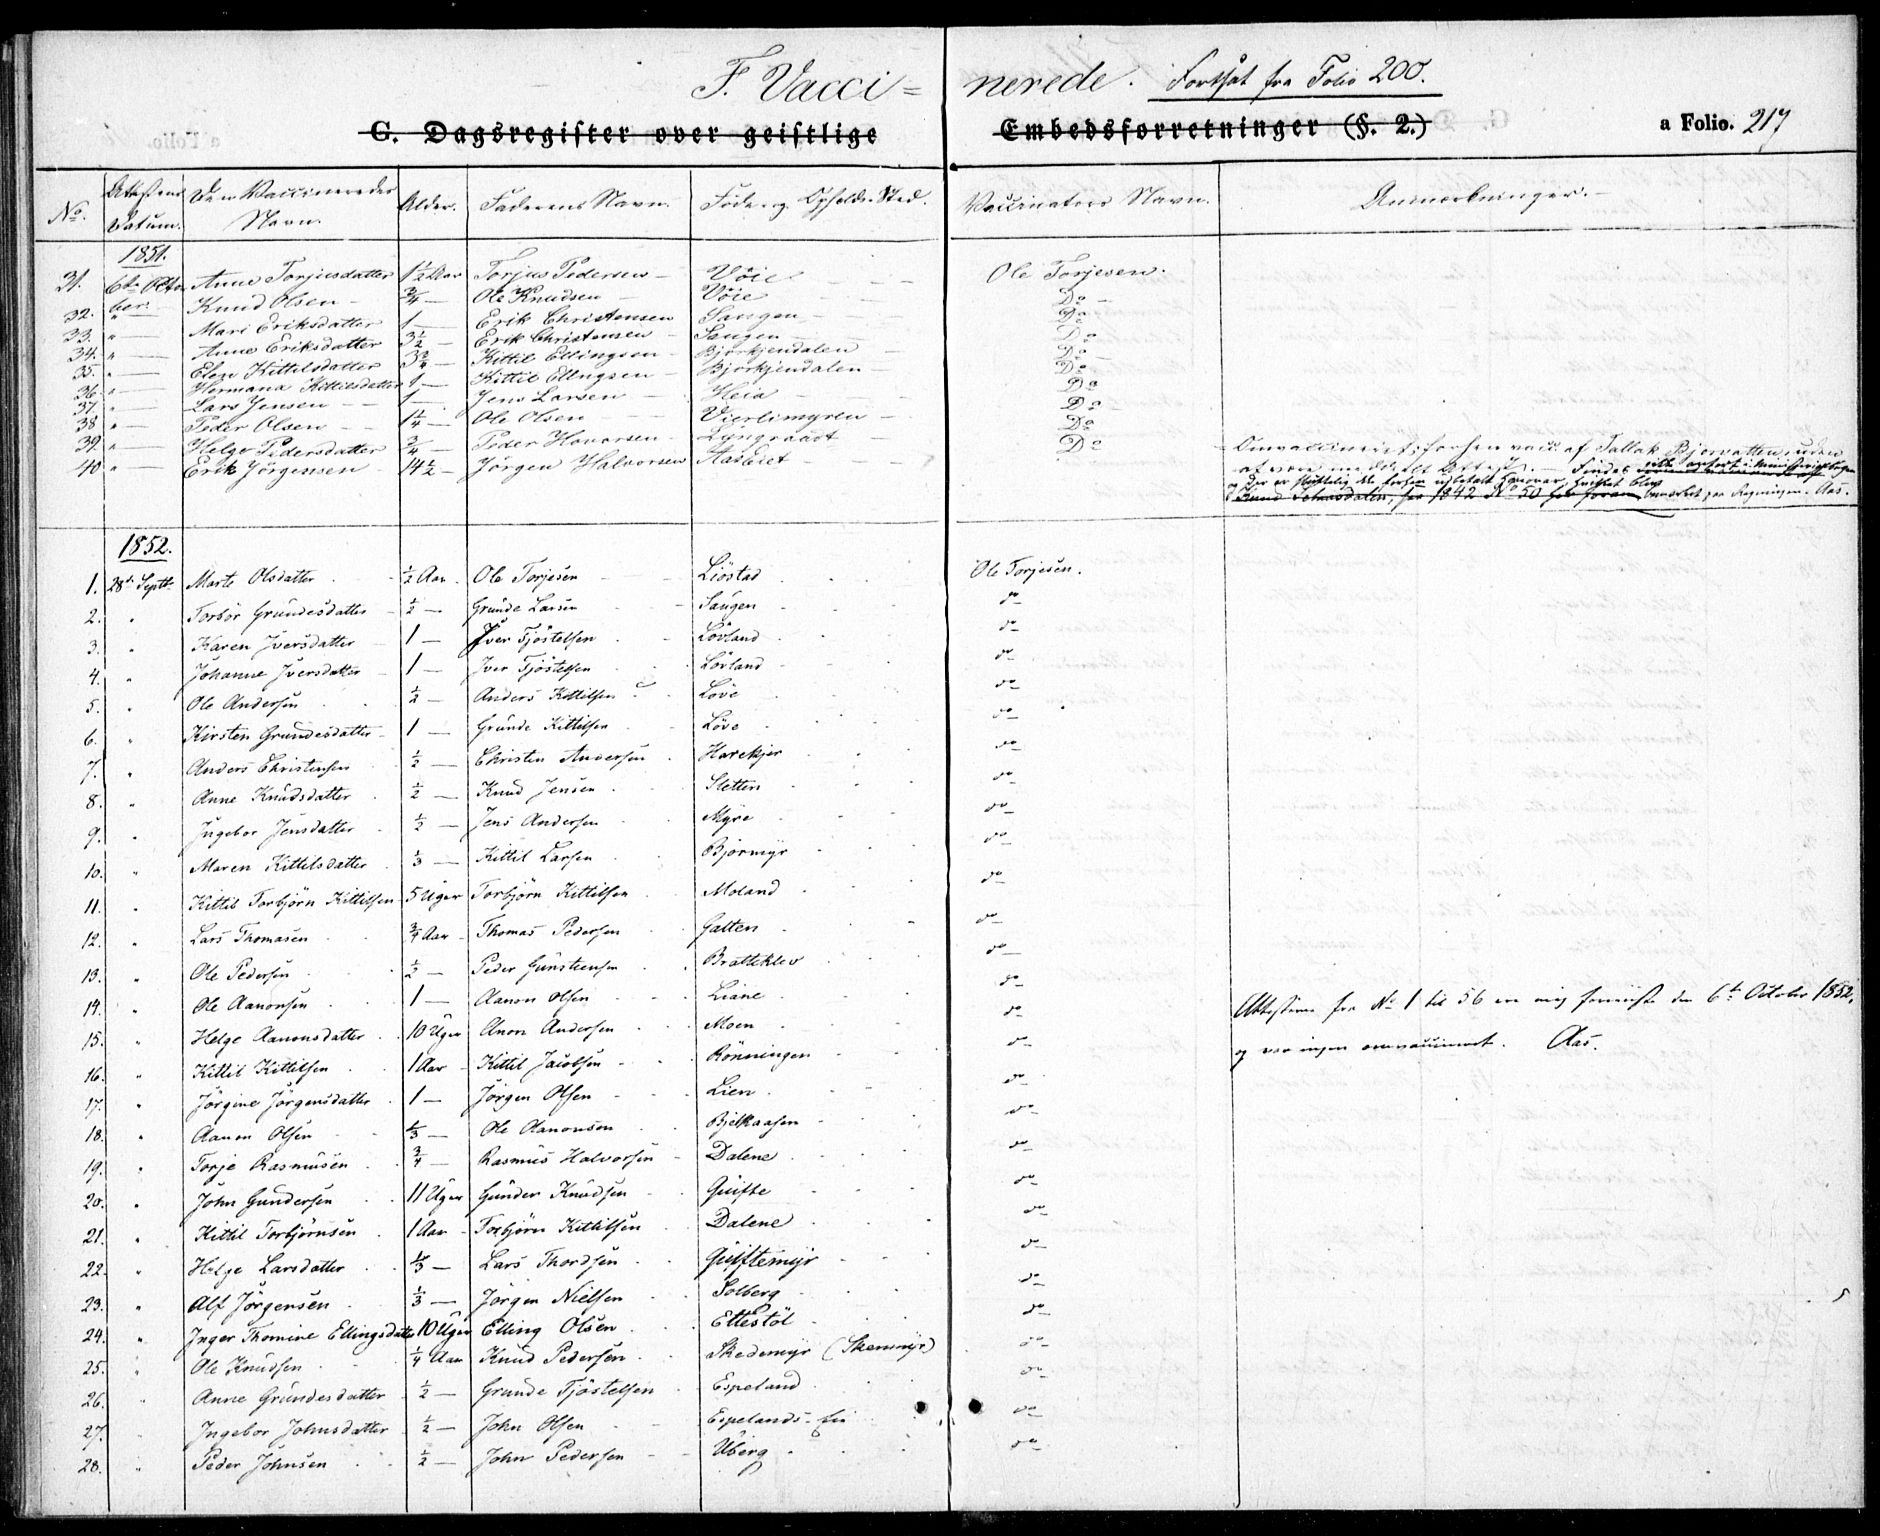 F. Vacci = nerede. Fortsat fra Folio 200.
G. Dagsregister over geistlige Embedsforretninger (§. 2.) a Folio. 217
No. Attestens Datum. Den Vaccineredes Navn. Alder. Faderens Navn. Føde og Opholds Sted. Vaccinators Navn. Anmærkninger.
1851.
31. 6te Octo Anne Torjusdatter 1½ Aar Torjus Pedersen Vöie Ole Torjesen.
32. ber. Knud Olsen ¾ — Ole Knudsen Vöie Do
33. " Mari Eriksdatter 1 — Erik Christensen Saugen Do
34. " Anne Eriksdatter 3½ — Erik Christensen Saugen Do
35. " Elen Kittilsdatter 3¾ — Kittil Ellingsen Björkjendalen Do
36. " Hermana Kittilsdatter 1 — Kittil Ellngsen Björkjendalen Do
37. " Lars Jensen 1 — Jens Larsen Heia Do
38 " Peder Olsen 1¼ — Ole Olsen Vierlimyren Do
39. " Helge Pedersdatter ¾ — Peder Hovorsen Lyngraadt Do
40 " Erik Jörgensen 14½ — Jörgen Halvorsen Aasbiet Do Omvaccineret; forhen vacc. af Tallak Bjorvatten, uden
at være meddelt Attest. — Findes ikke anført i Ministerialbogen
1852.
1. 28de Septb. Marte Olsdatter ½ Aar. Ole Torjesen Liöstad Ole Torjesen.
2. " Torbör Grundesdatter ½ — Grunde Larsen Saugen do
3. " Karen Iversdatter 1 — Iver Tjöstelsen Lövland do
4. " Johanne Iversdatter 1 — Iver Tjöstelsen Lövland do
5. " Ole Andersen ½ — Anders Kittilsen Löve do
6. " Kirsten Grundesdatter 1 — Grunde Kittilsen Löve do
7. " Anders Christensen ½ — Christen Andersen Harekjer do
8. " Anne Knudsdatter ½ — Knud Jensen Sletten do
9. " Ingebor Jensdatter ½ — Jens Andersen Myre do
10. " Maren Kittilsdatter ⅓ — Kittil Larsen Bjormyr do
11. " Kittil Torbjörn Kittilsen 5 Uger Torbjörn Kittilsen Moland do
12. " Lars Thomasen ¾ Aar Thomas Pedersen Galten do
13. " Ole Pedersen ½ — Peder Gunstensen Bratteklev do
14. " Ole Aanonsen 1 — Aanon Olsen Liane do Attesterne fra No 1 til 56 ere mig foreviiste den 6te October 1852,
15. " Helge Aanonsdatter 10 Uger Anon Andersen Moen do
og var ingen omvaccineret. Aas.
16. " Kittil Kittilsen 1 Aar Kittil Jacobsen Rönningen do
17. " Jörgine Jörgensdatter 1 — Jörgen Olsen Lien do
18. " Aanon Olsen ⅓ — Ole Aanonsen Bjelkaasen do
19. " Torje Rasmusen ¾ — Rasmus Halvorsen Dalene do
20. " John Gundersen 11 Uger Gunder Knudsen Quifte do
21. " Kittil Torbjörnsen 1 Aar Torbjörn Kittilsen Dalene do
22. " Helge Larsdatter ⅓ — Lars Thordsen Quiftemyr do
23. " Alf Jörgensen ⅓ — Jörgen Nielsen Solberg do
24. " Inger Thomine Ellingsdatter 10 Uger Elling Olsen Ettestöl do
25. " Ole Knudsen ¼ Aar Knud Pedersen Skedemyr (Skensmyr) do
26. " Anne Grundesdatter ½ — Grunde Tjöstelsen Espeland do
27. " Ingebor Johnsdatter ½ — John Olsen Espelands-Eie do
28. " Peder Johnsen ½ — John Pedersen Uberg do